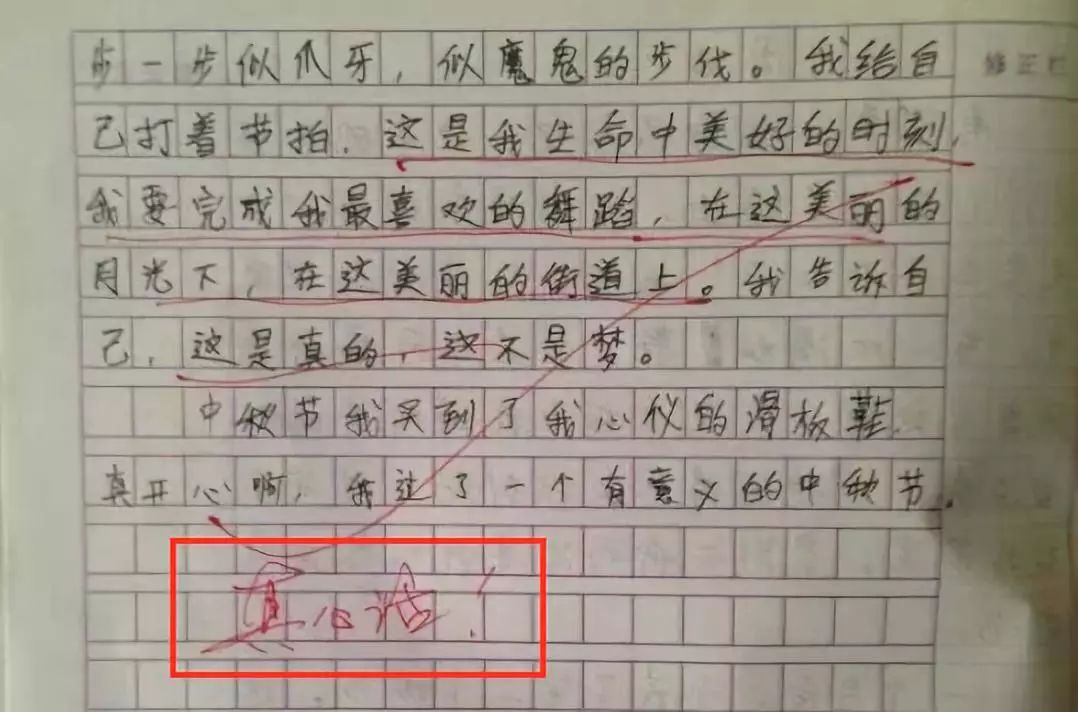 步一步似爪牙,似魔鬼的步伐。我给自
己打着节拍.这是我生命中美好的时刻,
我要完成我最喜欢的舞蹈,在这美丽的
月光下,在这美丽的街道上。我告诉自
己,这是真的,这不是梦。
中秋节我买到了我心仪的滑板鞋.
真开心啊,我过了一个有意义的中秋节.
真心话!